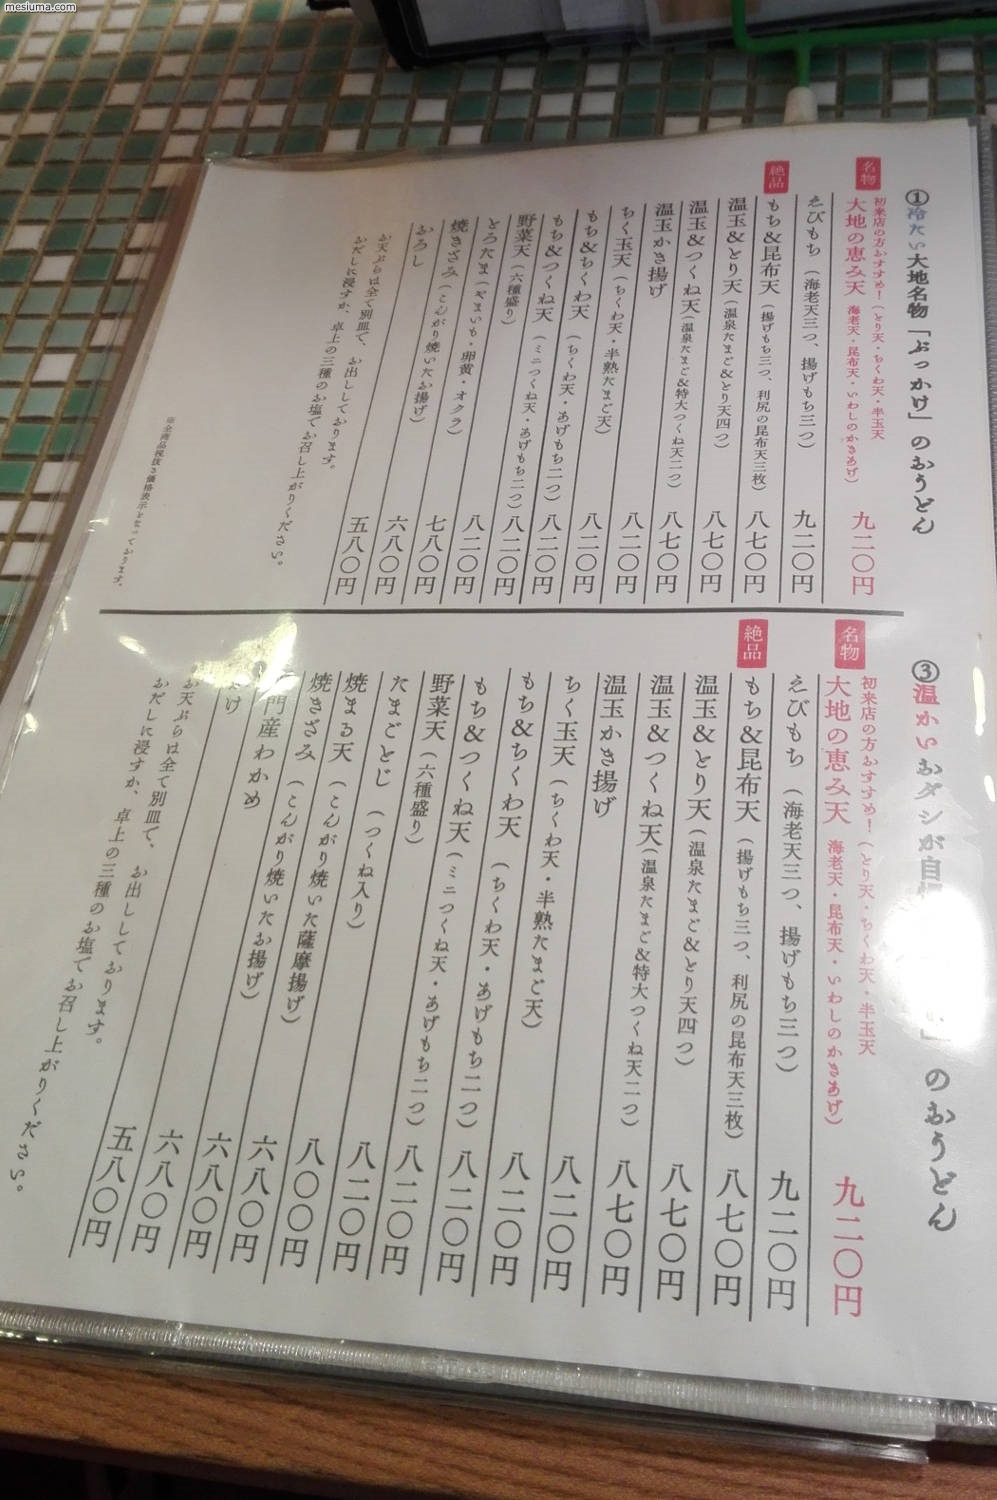 ①冷たい大地名物「ぶっかけ」のおうどん
名物
初来店の方おすすめ！（とり天・ちくわ天・半玉天
大地の恵み天 海老天・昆布天・いわしのかきあげ） 九二〇円
えびもち（海老天三つ、揚げもち三つ） 九二〇円
絶品
もち&昆布天（揚げもち三つ、利尻の昆布天三枚） 八七〇円
温玉&とり天（温泉たまご&とり天四つ） 八七〇円
温玉&つくね天（温泉たまご&特大つくね天二つ） 八七〇円
温玉かき揚げ 八二〇円
ちく玉天（ちくわ天・半熟たまご天） 八二〇円
もち&ちくわ天（ちくわ天・あげもち二つ） 八二〇円
もち&つくね天（ミニつくね天・あげもち二つ） 八二〇円
野菜天（六種盛り） 八二〇円
とろたま（やまいも・卵黄・オクラ） 七八〇円
焼きざみ（こんがり焼いたお揚げ） 六八〇円
おろし 五八〇円
お天ぷらは全て別皿で、お出ししております。
おだしに浸すか、卓上の三種のお塩でお召し上がりください。
※全商品税抜き価格表示となっております。
③温かいおダシが自 のおうどん
名物
初来店の方おすすめ！（とり天・ちくわ天・半玉天
大地の恵み天 海老天・昆布天・いわしのかきあげ） 九二〇円
えびもち（海老天三つ、揚げもち三つ） 九二〇円
絶品
もち&昆布天（揚げもち三つ、利尻の昆布天三枚） 八七〇円
温玉&とり天（温泉たまご&とり天四つ） 八七〇円
温玉&つくね天（温泉たまご&特大つくね天二つ） 八七〇円
温玉かき揚げ 八二〇円
ちく玉天（ちくわ天・半熟たまご天） 八二〇円
もち&ちくわ天（ちくわ天・あげもち二つ） 八二〇円
もち&つくね天（ミニつくね天・あげもち二つ） 八二〇円
野菜天（六種盛り） 八二〇円
たまごとじ（つくね入り） 八〇〇円
焼まる天（こんがり焼いた薩摩揚げ） 六八〇円
焼きざみ（こんがり焼いたお揚げ） 六八〇円
門産わかめ 六八〇円
け 五八〇円
お天ぷらは全て別皿で、お出ししております。
おだしに浸すか、卓上の三種のお塩でお召し上がりください。
mesiuma.com